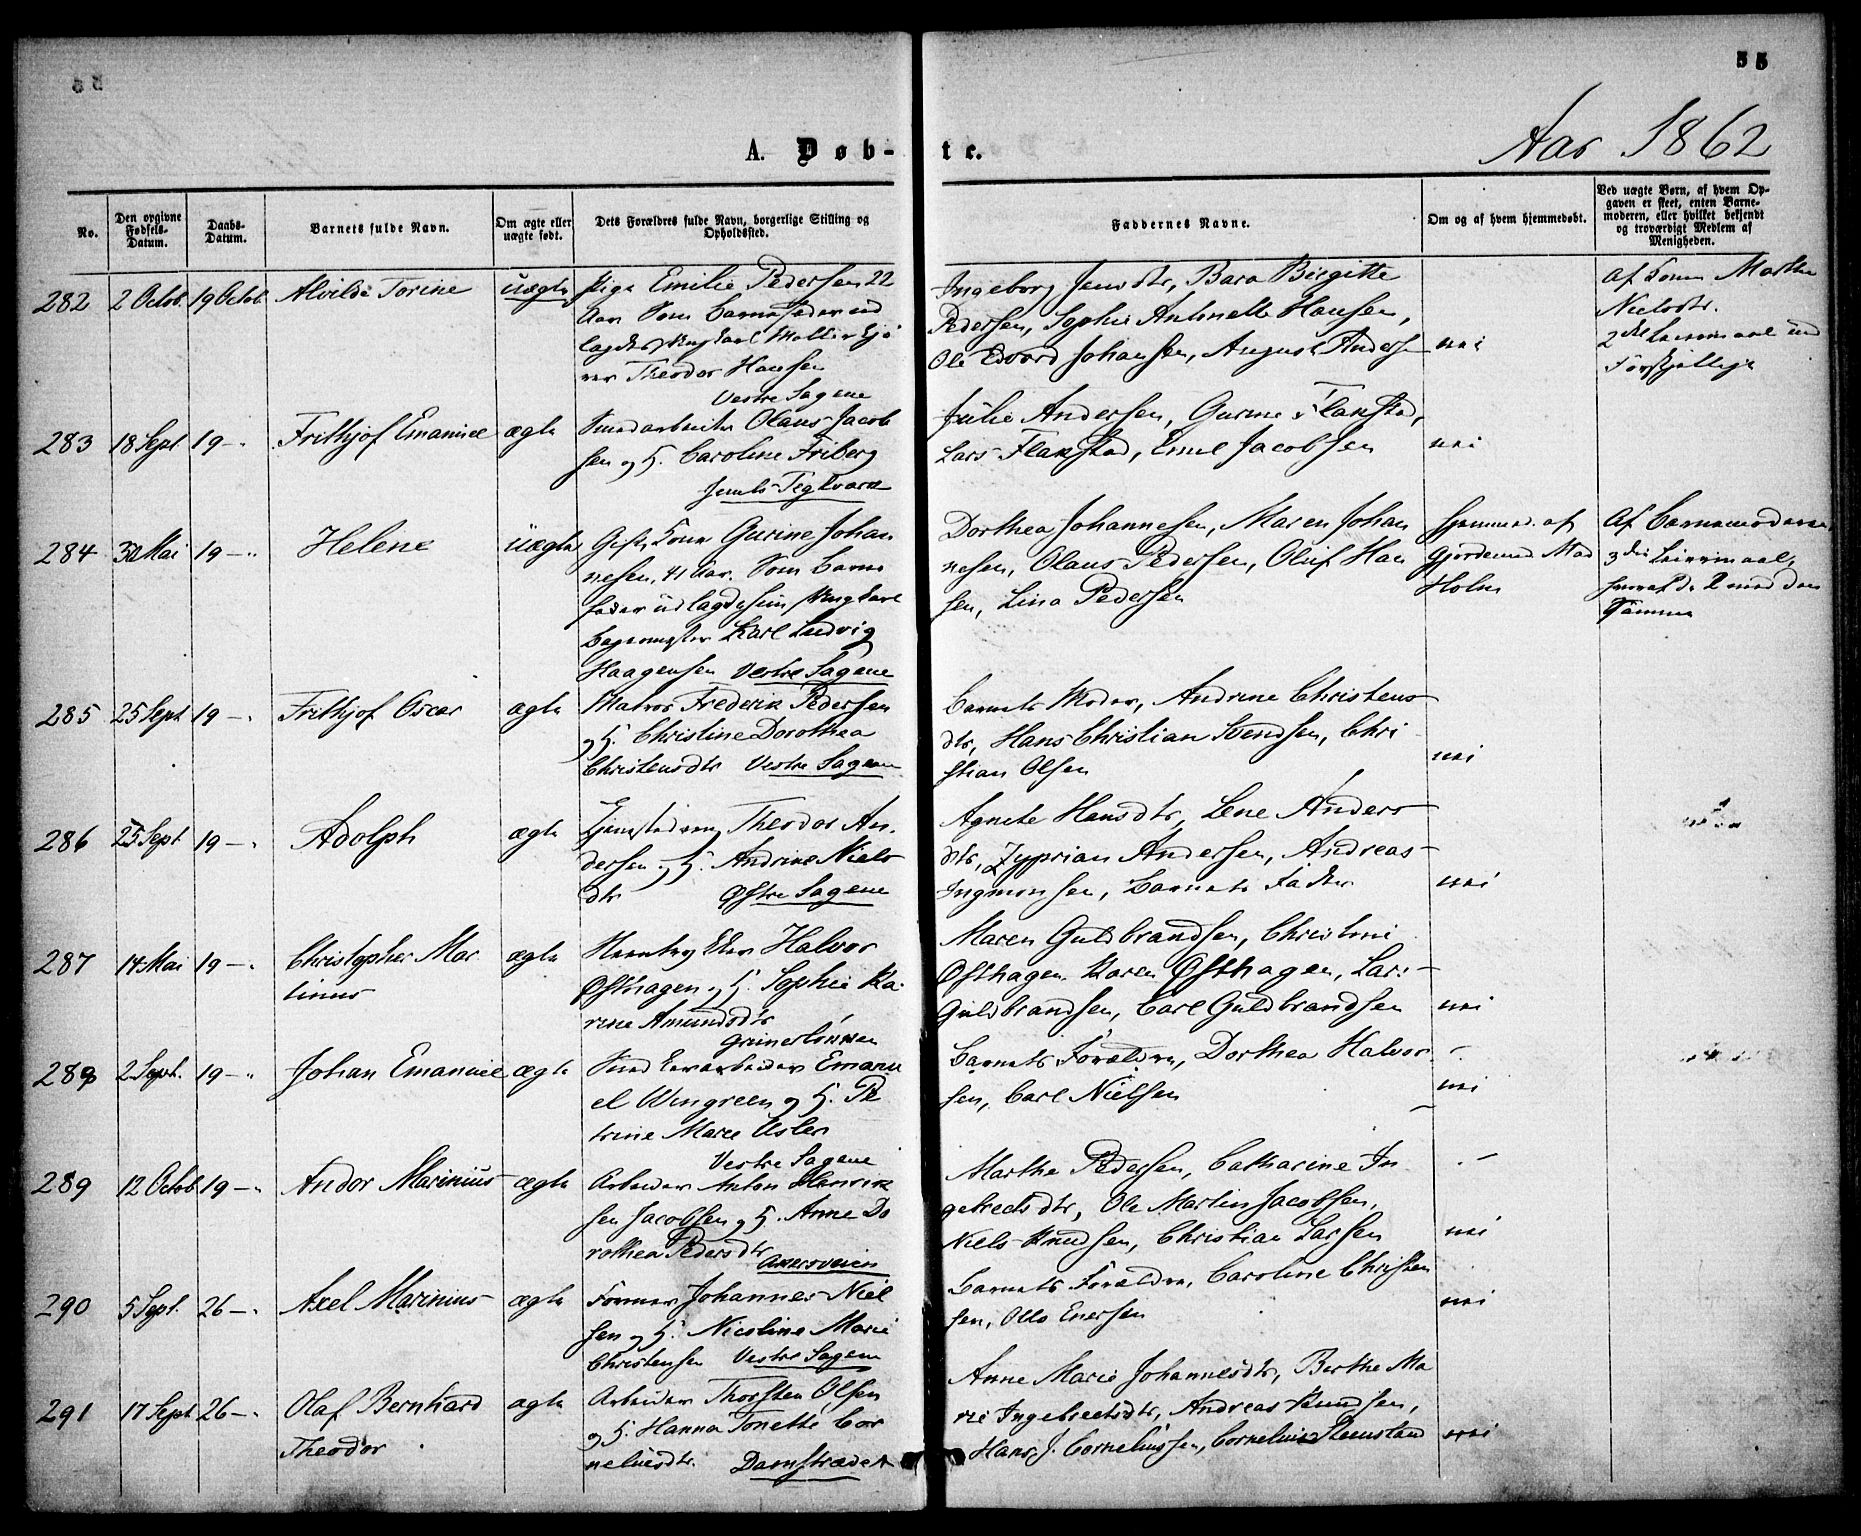 55
A. Døbte.
Aar 1862
No.
Den opgivne Fødsels-Datum.
Daabs-Datum.
Barnets fulde Navn.
Om ægte eller uægte født.
Dets Forældres fulde Navn, borgerlige Stilling og Opholdssted.
Faddernes Navne.
Om og af hvem hjemmedøbt.
Ved uægte Børn, af hvem Opgaven er skeet, enten Barnemoderen, eller hvilket bekjendt og troværdigt Medlem af Menigheden.
282 2 Octob. 19 Octob. Alvilde Torine uægte
Pige Emilie Pedersen 22
Aar Som Barnefader ud
lagdes Ungkarl Møller
Theodor Hansen
Vestre Sagene
Ingeborg Jensdtr, Bara Birgitte
Pedersen, Sophie Antonette Hansen,
Ole Edvard Johansen, August Andersen
nei
Af Konen Marthe
Nielsdtr.
2det Leiermaal med
Forskjellige
283 18 Sept 19 — Frithjof Emanuel ægte
Smedarbeider Olaus Jacob
sen og H. Caroline Friberg
Teglværk
Julie Andersen, Gurine Flakstad,
Lars Flakstad, Emil Jacobsen
nei
284 30 Mai 19 — Helene uægte
Gift Kone Gurine Johan
nesen, 41 Aar. Som Barne
fader udlagdes Ungkarl
Bagermester Karl Ludvig
Haagensen Vestre Sagene
Dorthea Johannesen, Maren Johan
nesen, Olaus Pedersen, Oluf Han
sen, Lina Pedersen
Hjemmed. af
Gjordemod. Mad
Holm
Af Barnemoderen
3die Leiermaal,
hvoraf de 2 med den
Samme
285 25 Sept 19 — Frithjof Oscar ægte
Matros Frederik Pedersen
og H. Christine Dorothea
Christensdtr Vestre Sagene
Barnets Moder, Andrine Christens
dtr, Hans Christian Svendsen, Chri
stian Olsen
nei
286 25 Sept 19 — Adolph ægte
Theodor An
dersen og H. Andrine Niels
dtr Østre Sagene
Agnete Hansdtr, Lene Anders
dtr, Zyprian Andersen, Andreas
Ingmonsen, Barnets Fader
nei
287 14 Mai 19 — Christopher Mar
tinus
ægte
Halvor
Østhagen og H. Sophie Ka
rine Amundsdtr
Grünerløkken
Maren Guldbrandsen, Christine
Østhagen Karen Østhagen, Lars
Guldbrandsen, Carl Guldbrandsen
nei
288 2 Sept. 19 — Johan Emanuel ægte
Emanu
el Wengreen og H. Pe
trine Marie
Vestre Sagene
Barnets Forældre, Dorthea Halvor
sen, Carl Nielsen
nei
289 12 Octob 19 — Andor Marinius ægte
Arbeider Anton Henrik
sen Jacobsen og H. Anne Do
rothea Pedersdtr
Akersveien
Marthe Pedersen, Catharine In
gebretsdtr, Ole Martin Jacobsen,
Niels Knudsen, Christian Larsen
nei
290 5 Sept. 26 — Axel Marinius ægte
Former Johannes Niel
sen og H. Nicoline Marie
Christensen Vestre Sagene
Barnets Forældre, Caroline Christen
sen, Otto Enersen
nei
291 17 Sept 26 — Olaf Bernhard
Theodor
ægte
Arbeider Thorsten Olsen
og H. Hanna Tonette Cor
neliusdtr. Damstrædet
Anne Marie Johannesdtr, Berthe Ma
rie Ingebretsdtr, Andreas Knudsen,
Hans J. Corneliussen, Cornelius
nei